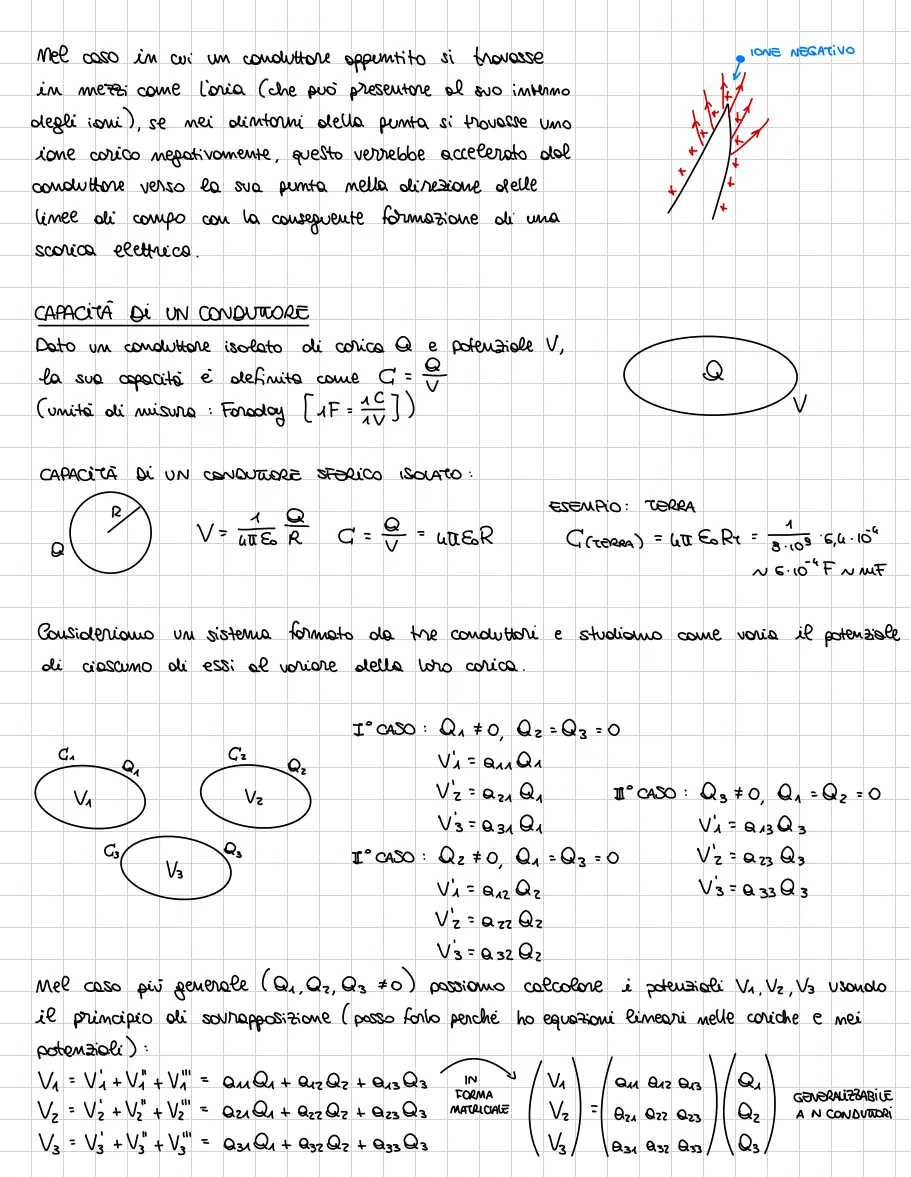 Nel caso in cui un conduttore appuntito si trovasse
in mezzi come l'aria (che può presentare al suo interno
degli ioni), se nei dintorni della punta si trovasse uno
ione carico negativamente, questo verrebbe accelerato dal
conduttore verso la sua punta nella direzione delle
linee di campo con la conseguente formazione di una
scarica elettrica.
IONE NEGATIVO
CAPACITÀ DI UN CONDUTTORE
Dato un conduttore isolato di carica Q e potenziale V,
la sua capacità è definita come C = Q/V
(unità di misura : Faraday [1F = 1C/1V])
Q
V
CAPACITÀ DI UN CONDUTTORE SFERICO ISOLATO :
R
Q
V = 1/4πε₀ Q/R C = Q/V = 4πε₀R
ESEMPIO: TERRA
C(TERRA) = 4π ε₀ R_T = 1/9·10⁹ · 6,4 · 10⁻⁴
~ 6·10⁻⁴ F ~ mF
Consideriamo un sistema formato da tre conduttori e studiamo come varia il potenziale
di ciascuno di essi al variare della loro carica.
C₁ Q₁ V₁
C₂ Q₂ V₂
C₃ Q₃ V₃
I° CASO : Q₁ ≠ 0, Q₂ = Q₃ = 0
V'₁ = a₁₁ Q₁
V'₂ = a₂₁ Q₁
V'₃ = a₃₁ Q₁
I° CASO : Q₂ ≠ 0, Q₁ = Q₃ = 0
V'₁ = a₁₂ Q₂
V'₂ = a₂₂ Q₂
V'₃ = a₃₂ Q₂
II° CASO : Q₃ ≠ 0, Q₁ = Q₂ = 0
V'₁ = a₁₃ Q₃
V'₂ = a₂₃ Q₃
V'₃ = a₃₃ Q₃
Nel caso più generale (Q₁, Q₂, Q₃ ≠ 0) possiamo calcolare i potenziali V₁, V₂, V₃ usando
il principio di sovrapposizione (posso farlo perché ho equazioni lineari nelle cariche e nei
potenziali) :
V₁ = V₁' + V₁'' + V₁''' = a₁₁Q₁ + a₁₂Q₂ + a₁₃Q₃
V₂ = V₂' + V₂'' + V₂''' = a₂₁Q₁ + a₂₂Q₂ + a₂₃Q₃
V₃ = V₃' + V₃'' + V₃''' = a₃₁Q₁ + a₃₂Q₂ + a₃₃Q₃
IN
FORMA
MATRICIALE
(V₁ (a₁₁ a₁₂ a₁₃) (Q₁
V₂ = a₂₁ a₂₂ a₂₃ Q₂
V₃) (a₃₁ a₃₂ a₃₃) Q₃)
GENERALIZZABILE
A N CONDUTTORI